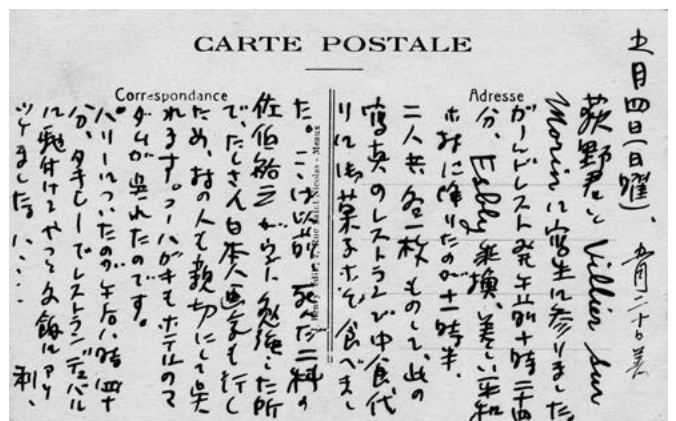 CARTE POSTALE
Correspondance
Adresse
五月四日(日曜)、 五月二十日着
荻野君と Villier sur
Morin に写生に参りました。
ガールドレスト発午前十時二十四
分、Esbly 乗換、美しい平和
な村に降りたのが十一時半、
二人共各一枚ものして、此の
写真のレストランで中食代
りにお菓子など食べまし
た。ここは以前死んだ二科の
佐伯祐三が勉強した所
で、たくさん日本人画家も行く
ため、村の人も親切にして呉
れます。コノハガキもホテルのマ
ダムが呉れたのです。
パリーについたのが午后八時四十
分、タキシーでレストランデュバル
に駆付けてやっと夕飯にアリ
ツキました。
Rue Saint Nicolas - Meaux